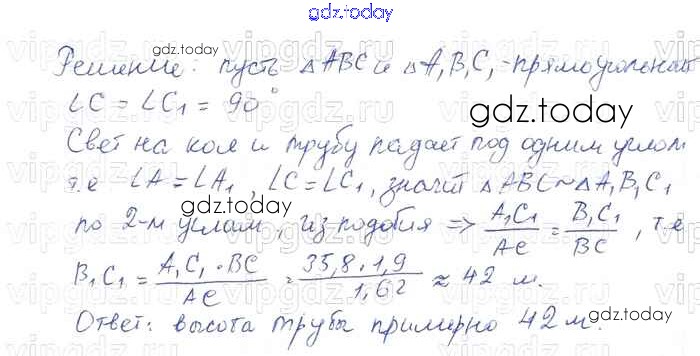 gdz.today
gdz.today
Решение: пусть △ABC и △A₁B₁C₁ - прямоугольные
∠C = ∠C₁ = 90°
gdz.today
Свет на кол и трубу падает под одним углом
т.е ∠A = ∠A₁, ∠C = ∠C₁, значит △ABC ~ △A₁B₁C₁
gdz.today
по 2-м углам, из подобия => A₁C₁/AC = B₁C₁/BC, т.е
B₁C₁ = A₁C₁·BC/AC = 35,8·1,9/1,62 ≈ 42 м.
gdz.today
Ответ: высота трубы примерно 42 м.